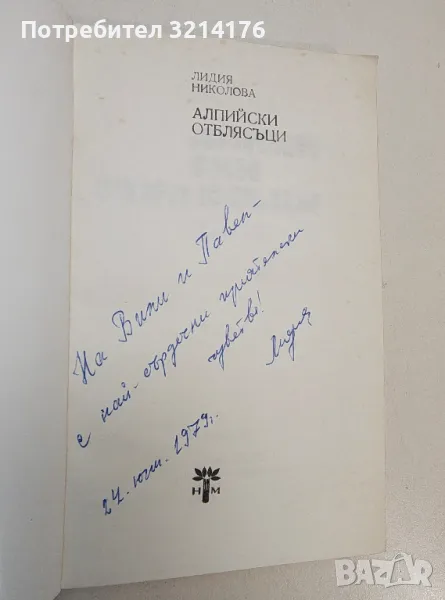 Потребител 37791196
ЛИДИЯ
НИКОЛОВА
АЛПИЙСКИ
ОТБЛЯСЪЦИ
На Вили и Павел -
с най-сърдечни приятелски
чувства!
Лидия
24. юли. 1979г.
Н М
BAZAR